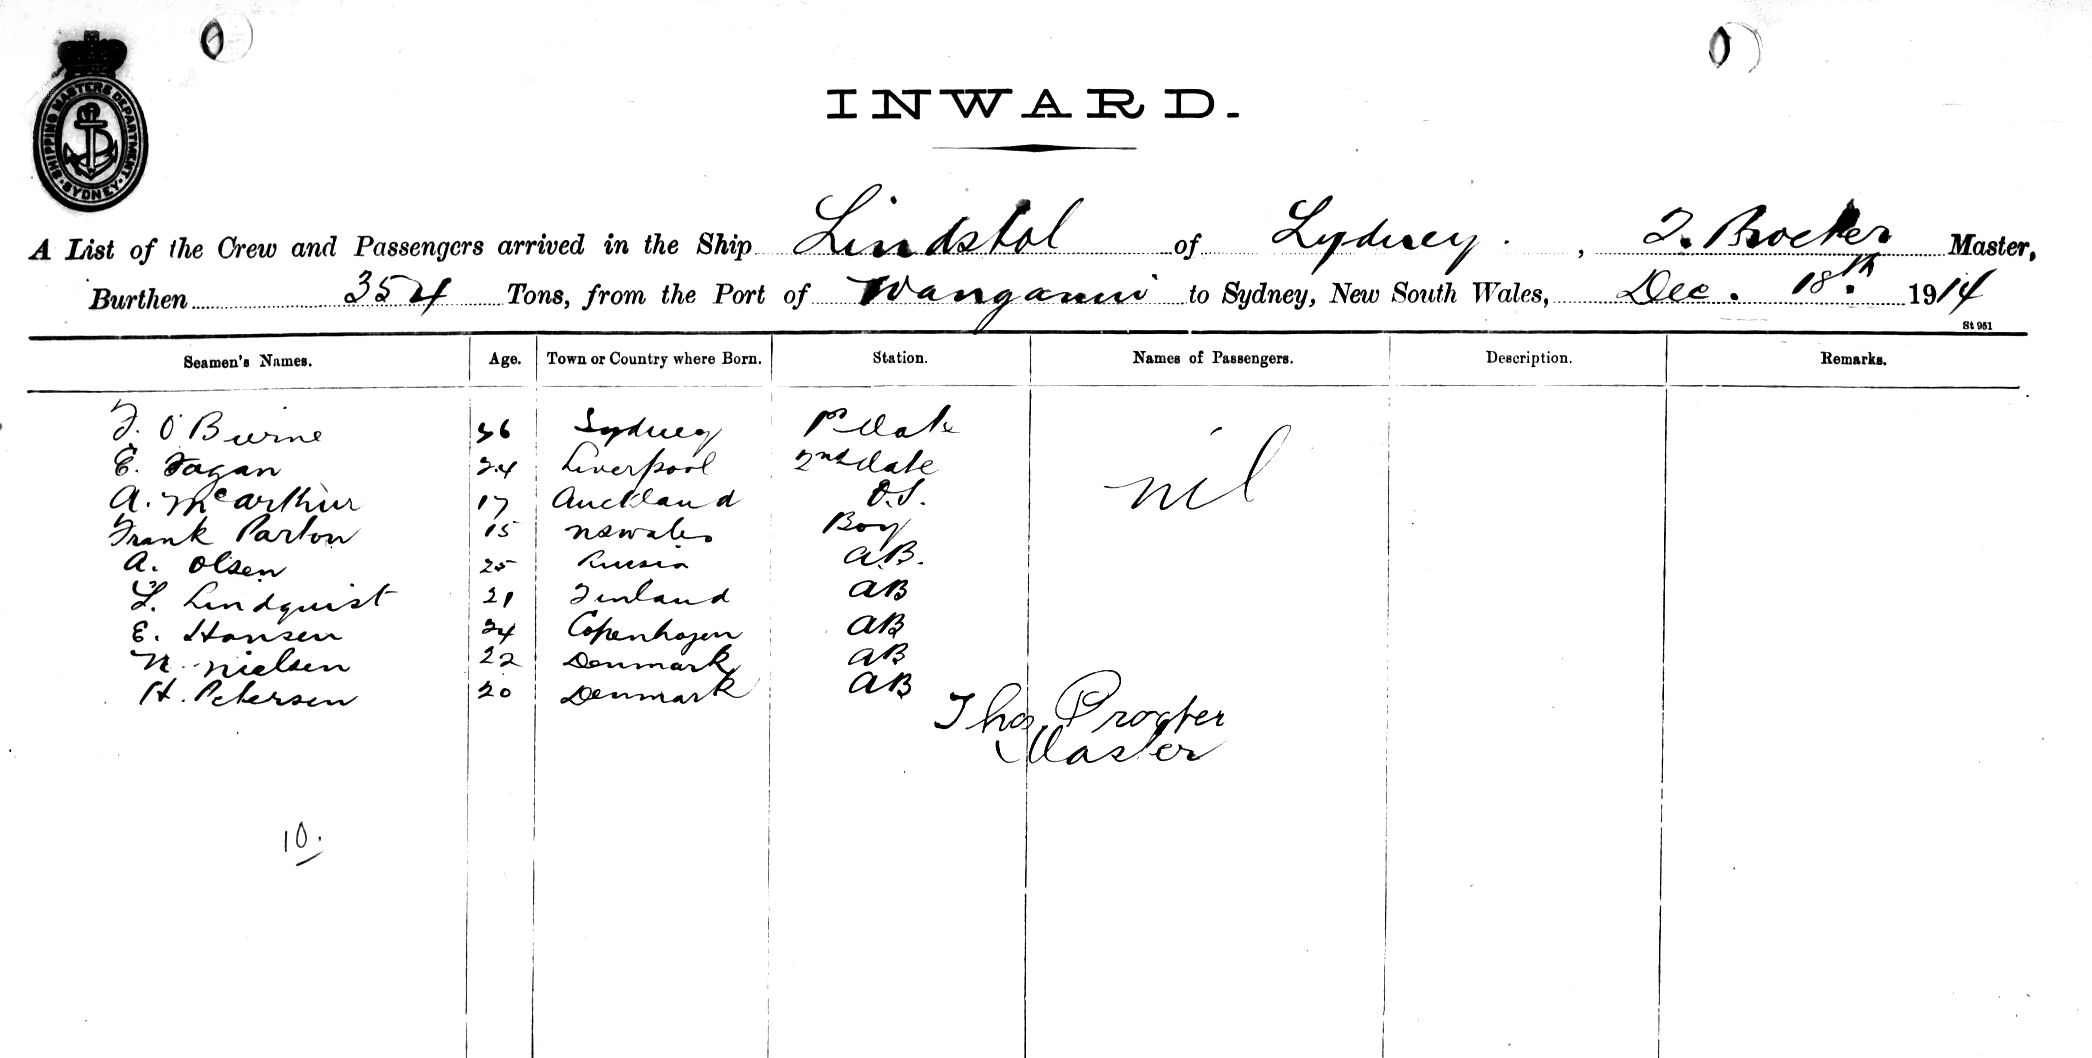 SHIPPING MASTERS DEPARTMENT SYDNEY
INWARD.
A List of the Crew and Passengers arrived in the Ship Lindstol of Sydney. , Master,
Burthen 354 Tons, from the Port of Wanganui to Sydney, New South Wales, Dec. 18th. 1914
St 951
Seamen's Names. Age. Town or Country where Born. Station. Names of Passengers. Description. Remarks.
O'Birne 36 Sydney 1st Mate nil
E. Fagan 24 Liverpool 2nd Mate
A. McArthur 17 Auckland O.S.
Frank Parton 15 NSWales Boy
A. Olsen 25 Russia A.B.
L. Lindquist 21 Finland AB
E. Hansen 24 Copenhagen AB
N. Nielsen 22 Denmark AB
H. Petersen 20 Denmark AB
Thos Procter
Master
10.